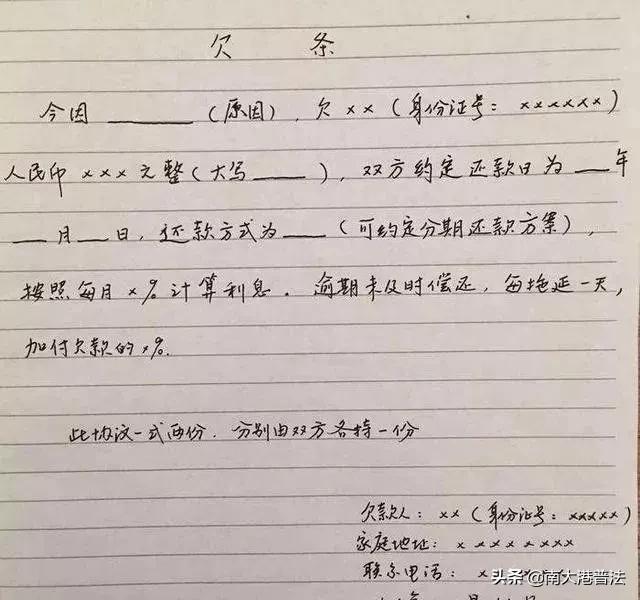 欠 条
今因______(原因),欠××(身份证号:××××××)
人民币×××元整(大写____),双方约定还款日为___年
___月___日,还款方式为____(可约定分期还款方案),
按照每月×%计算利息。逾期未及时偿还,每拖延一天,
加付欠款的×%.
此协议一式两份.分别由双方各持一份
欠款人:××(身份证号:×××××)
家庭地址:××××××××
联系电话:×
头条@南大港普法